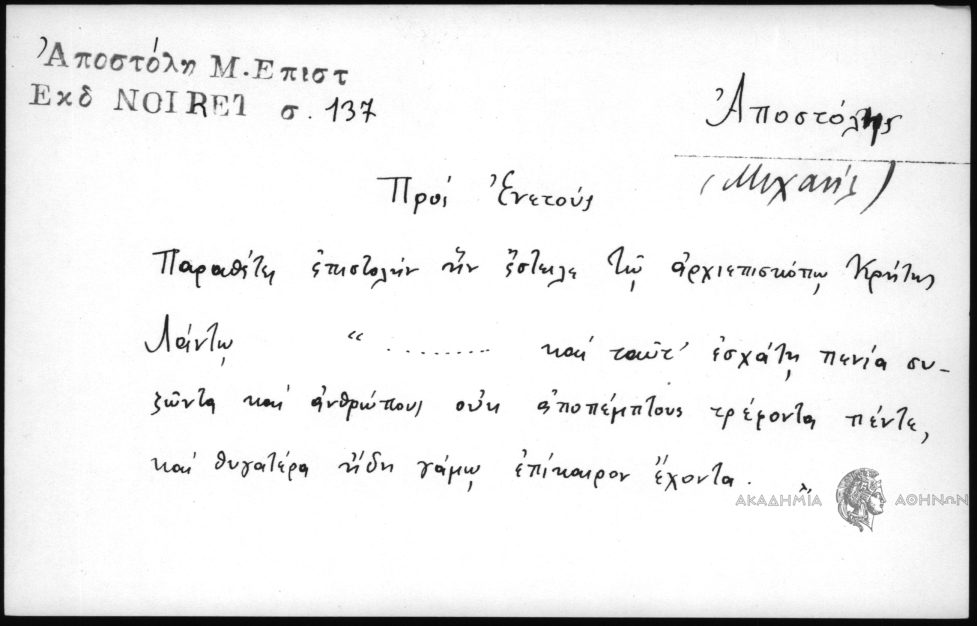 Ἀποστόλη Μ. Επιστ
Εκδ NOIRET σ. 137
Ἀποστόλης
(Μιχαήλ)
Πρός Ἐνετούς
Παραθέτει ἐπιστολήν ἥν ἔστειλε τῷ ἀρχιεπισκόπῳ Κρήτης
Λάντῳ " .......... καί ταῦτ' ἐσχάτῃ πενίᾳ συ-
ζῶντα καί ἀνθρώπους οὐκ ἀποπέμπτους τρέφοντα πέντε,
καί θυγατέρα ἤδη γάμῳ ἐπίκαιρον ἔχοντα.
ΑΚΑΔΗΜΙΑ ΑΘΗΝΩΝ